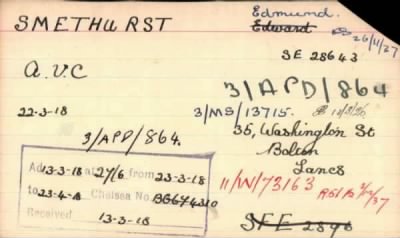 SMETHURST
Edmund.
Edward
26/4/37
SE 28643
A.V.C
3/APD/864
22-3-18
3/MS/13715.
3/APD/864.
35, Washington St
Bolton
Lancs
Ad 13-3-18 at 27/6 from 23-3-18
to 23-4-18 Chelsea No.
Received 13-3-18
11/W/73163
SFE 2898